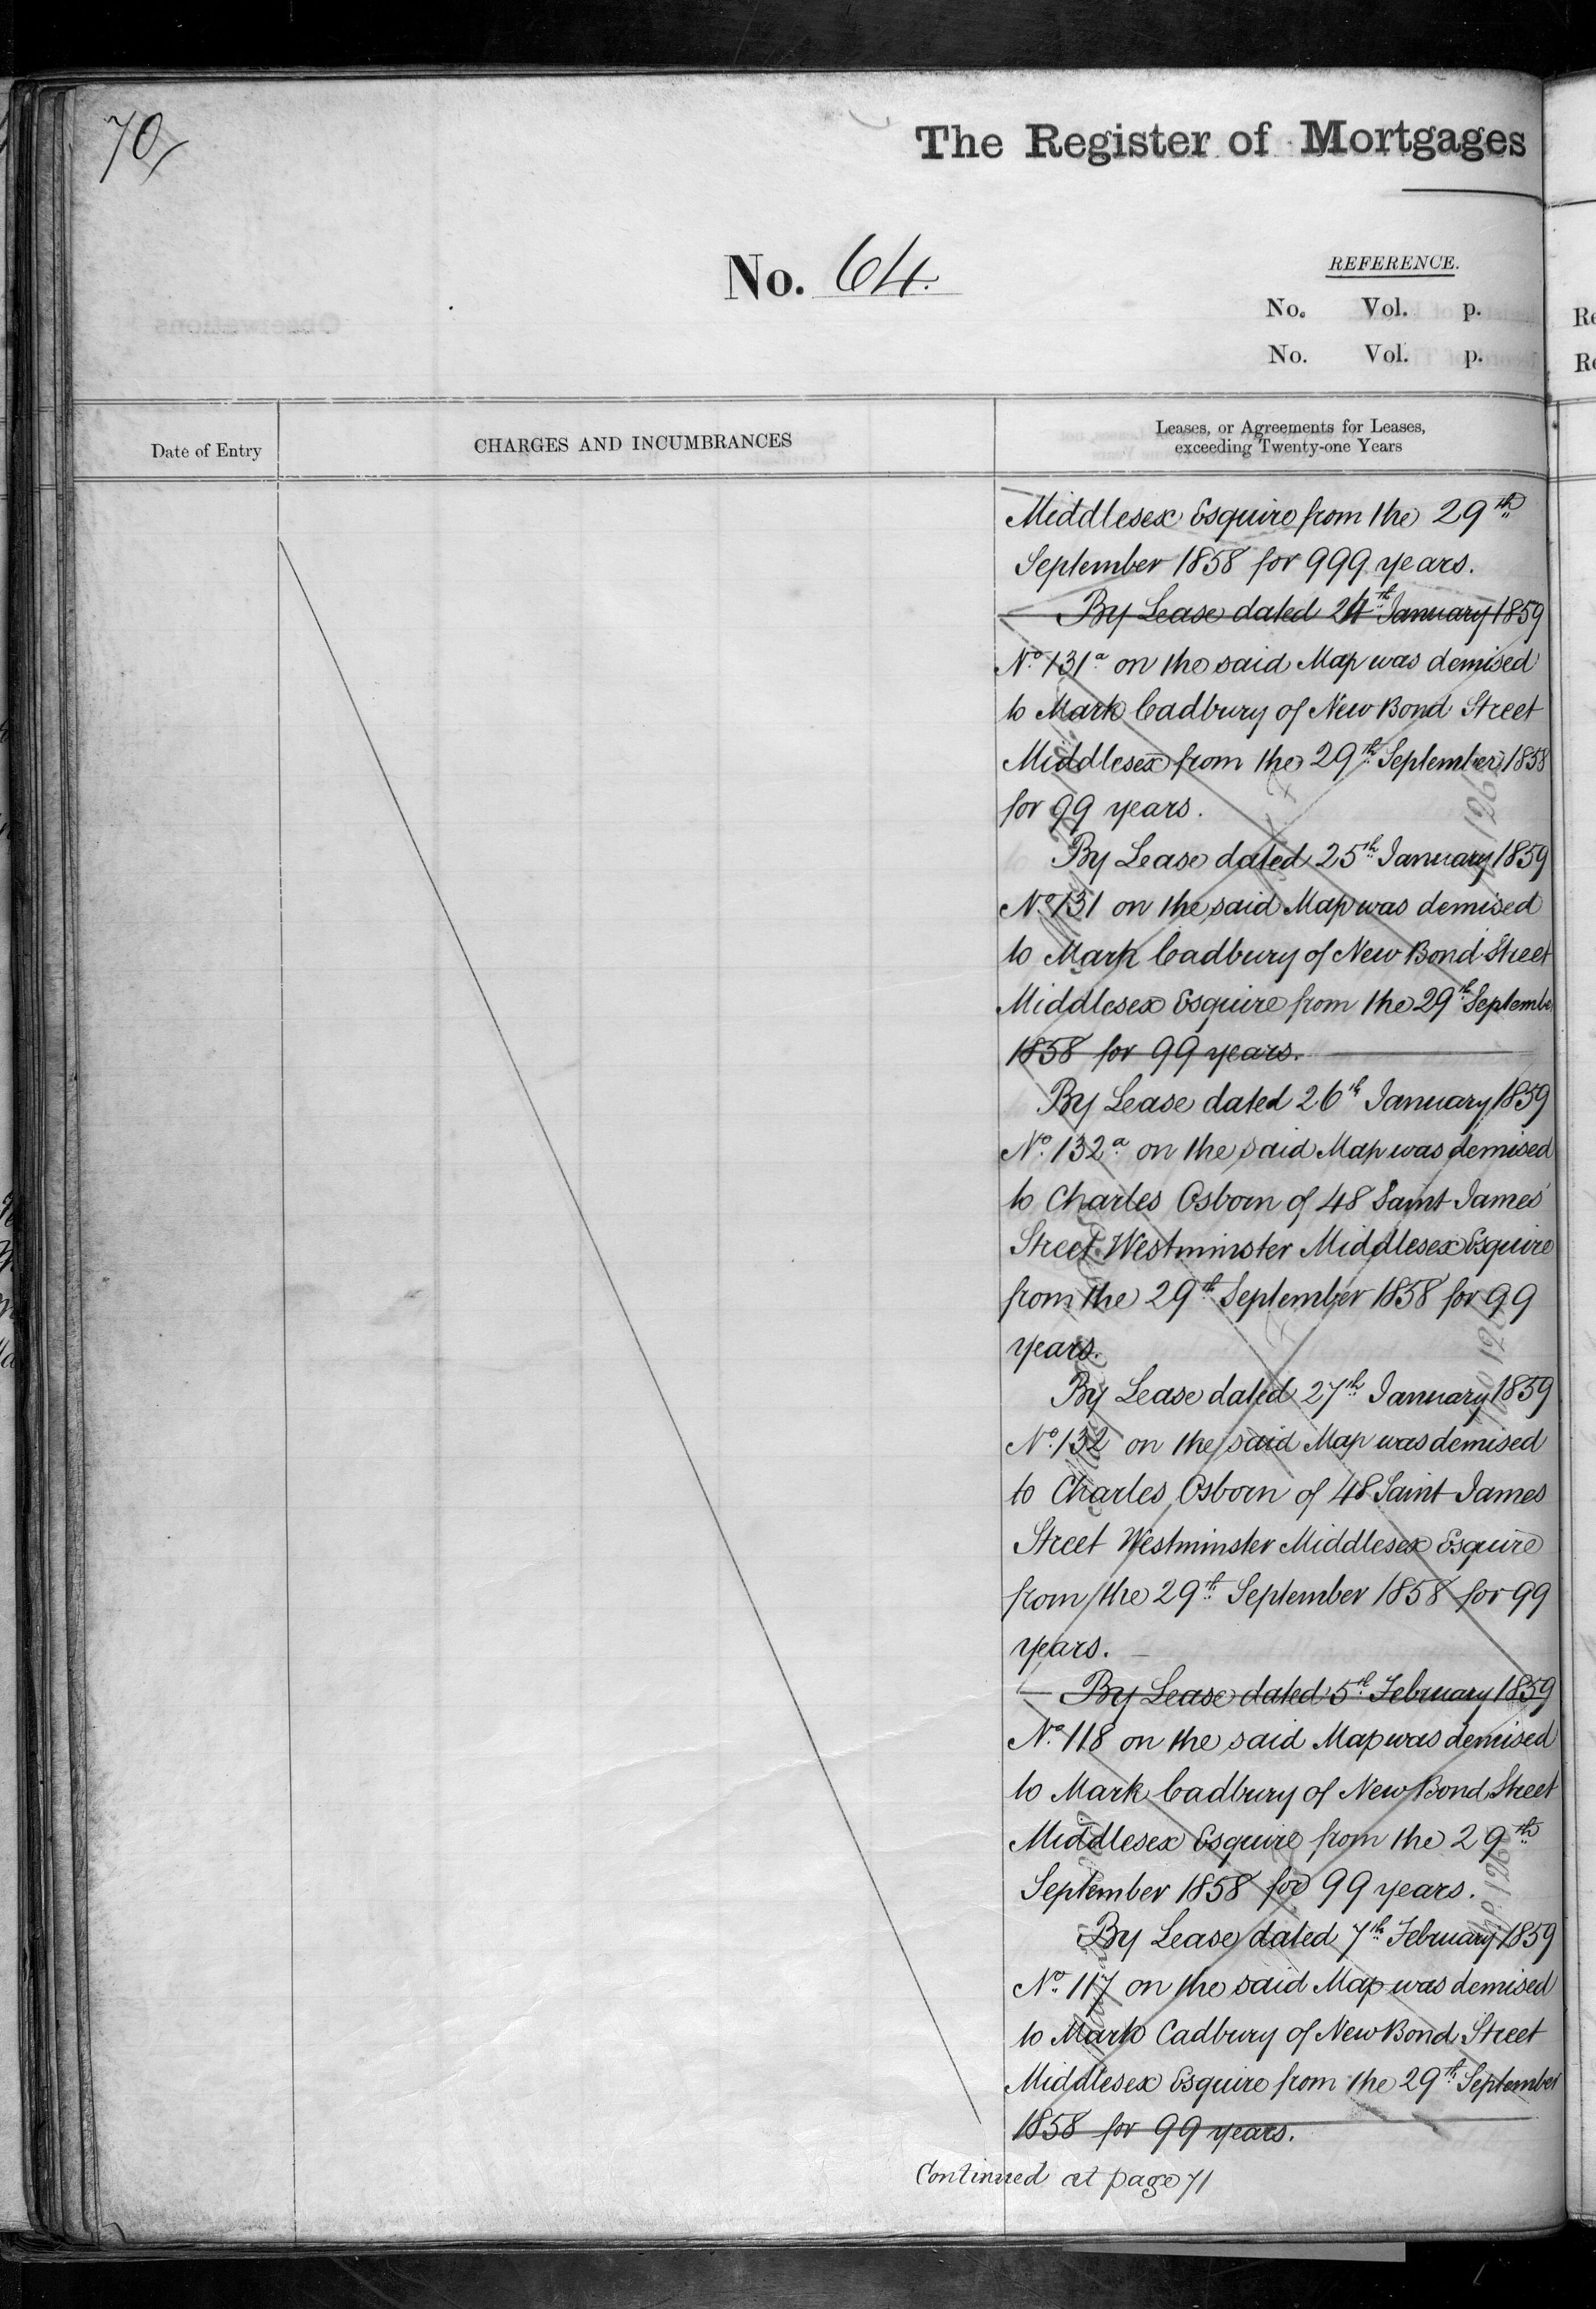 70/
The Register of Mortgages
No. 64.
REFERENCE.
No. Vol. p.
No. Vol. p.
Date of Entry
CHARGES AND INCUMBRANCES
Leases, or Agreements for Leases,
exceeding Twenty-one Years
Middlesex Esquire from the 29th
September 1858 for 999 years.
By Lease dated 24th January 1859
No. 131a on the said Map was demised
to Mark Cadbury of New Bond Street
Middlesex from the 29th September 1858
for 99 years.
By Lease dated 25th January 1859
No. 131 on the said Map was demised
to Mark Cadbury of New Bond Street
Middlesex Esquire from the 29th Septembe
1858 for 99 years.
By Lease dated 26th January 1859
No. 132a on the said Map was demised
to Charles Osborn of 48 Saint James'
Street Westminster Middlesex Esquire
from the 29th September 1858 for 99
years.
By Lease dated 27th January 1859
No. 132 on the said Map was demised
to Charles Osborn of 48 Saint James
Street Westminster Middlesex Esquire
from the 29th September 1858 for 99
years.
By Lease dated 5th February 1859
No. 118 on the said Map was demised
to Mark Cadbury of New Bond Street
Middlesex Esquire from the 29th
September 1858 for 99 years.
By Lease dated 7th February 1859
No. 117 on the said Map was demised
to Mark Cadbury of New Bond Street
Middlesex Esquire from the 29th September
1858 for 99 years.
Continued at page 71